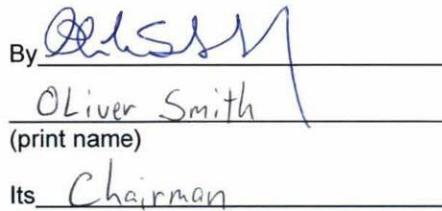 By
OLiver Smith
(print name)
Its Chairman